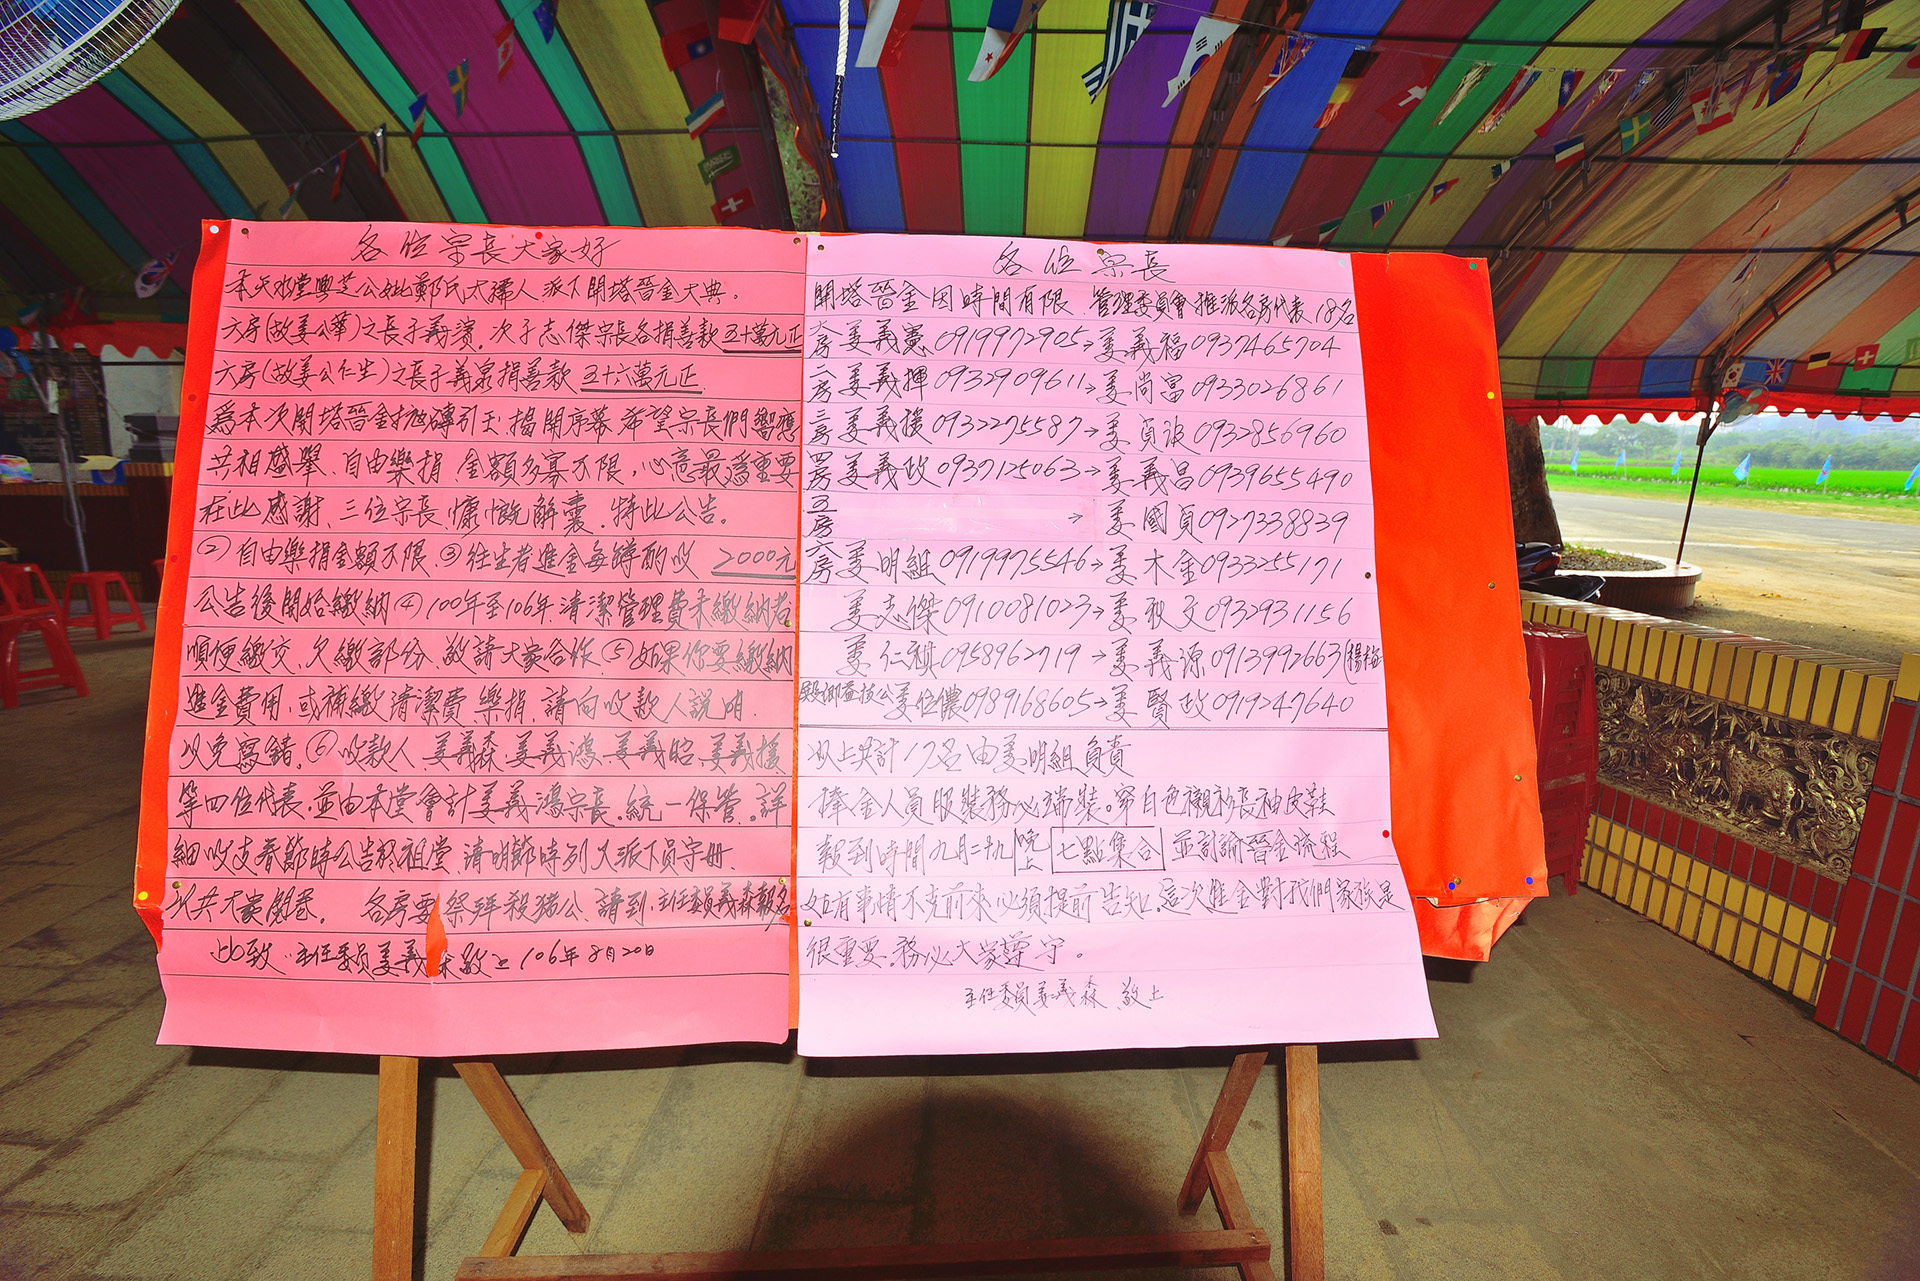 各位宗長大家好
本天水堂興芝公妣鄭氏太孺人派下開塔晉金大典.
六房(故姜公華)之長子義濱.次子志傑宗長各捐善款五十萬元正
六房(故姜公仁生)之長子義泉捐善款 五十六萬元正
為本次開塔晉金拋磚引玉.揭開序幕.希望宗長們響應
共相盛舉、自由樂捐.金額多寡不限,心意最為重要
在此感謝、三位宗長、慷慨解囊.特此公告。
②自由樂捐金額不限.③往生者進金每罈酌收 2000元
公告後開始繳納④100年至106年.清潔管理費未繳納者
順便繳交、欠繳部份、敬請大家合作.⑤如果你要繳納
進金費用、或補繳清潔費、樂捐、請向收款人說明.
以免寫錯.⑥收款人.姜義森.姜義鴻.姜義昭.姜義援
等四位代表.並由本堂會計姜義鴻宗長.統一保管.。詳
細收支春節時公告於祖堂、清明節時列入派下員守冊.
以共大家閱卷。 各房要祭拜殺豬公、請到.主任委員義森報名
此致..主任委員姜義森敬上106年8月20日
各位宗長
開塔晉金因時間有限、管理委員會推派各房代表18名
大房姜義憲0919972905→姜義福0937465704
二房姜義揮0932909611→姜尚富0933026861
三房姜義援0932275587→姜貞波0932856960
四房姜義政0937125063→姜義昌0939655490
五房 → 姜國貞0927338839
六房姜明組0919975546→姜木金0933255171
姜志傑0910081023→姜秋文0932931156
姜仁祺0958962719→姜義源0913992663(楊梅
姜仕儂0989168605→姜賢政0919247640
以上共計17名由姜明組負責
捧金人員服裝務必端裝。穿白色襯衫長袖皮鞋
報到時間九月二十九 晚上 七點集合 並討論晉金流程
如有事情不克前來必須提前告知.這次進金對我們家族是
很重要.務必大家遵守。
主任委員姜義森、敬上